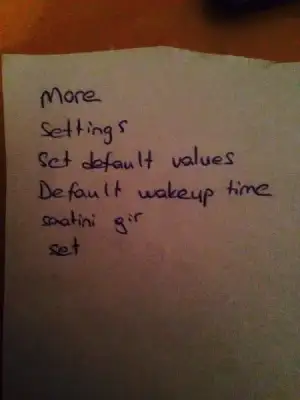 More
Settings
Set default values
Default wakeup time
saatini gir
set